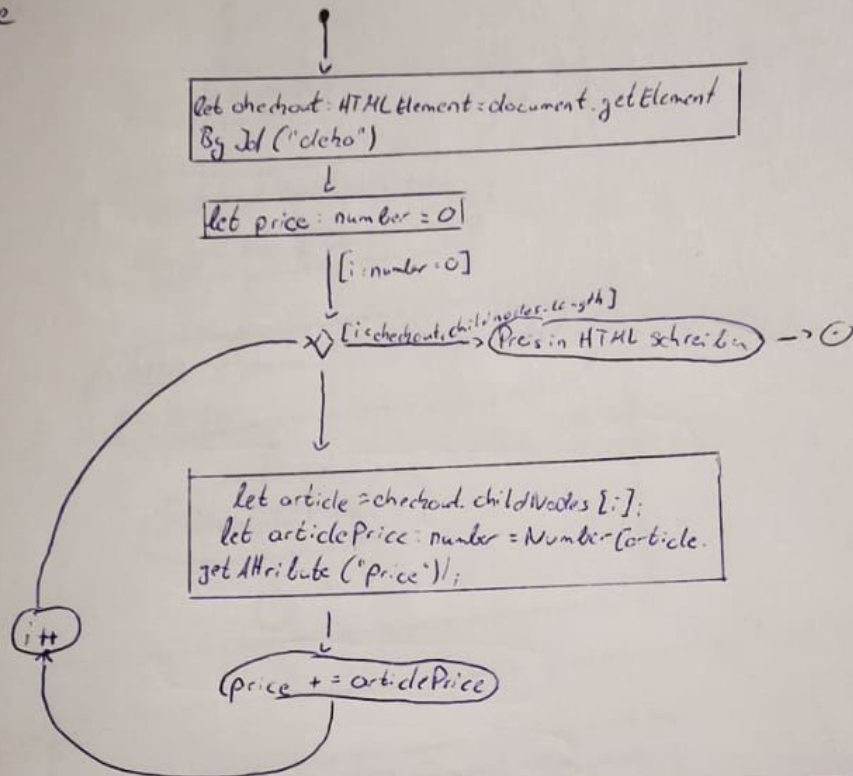 let checkout: HTMLElement = document.getElement
By Id ("deho")
let price: number = 0
[i: number = 0]
[i<checkout.childnodes.length]
Preis in HTML schreiben
let article = checkout.childNodes [i];
let articlePrice: number = Number (article.
getAttribute ("price"));
i++
price += articlePrice